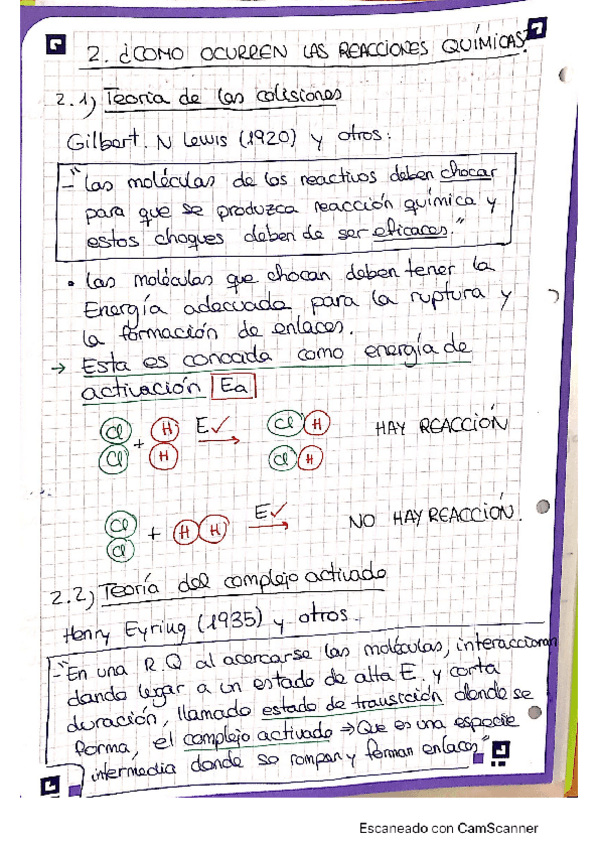 2. ¿COMO OCURREN LAS REACCIONES QUÍMICAS?
2.1) Teoria de las colisiones
Gilbert. N Lewis (1920) y otros:
-"Las moléculas de los reactivos deben chocar
para que se produzca reacción química y
estos choques deben de ser eficaces."
• Las moléculas que chocan deben tener la
Energía adecuada para la ruptura y
la formación de enlaces.
→ Esta es conocada como energía de
activación Ea
Cl Cl + H H E✓ → Cl H Cl H HAY REACCIÓN
Cl Cl + H H E✓ → NO HAY REACCIÓN.
2.2) Teoría del complejo activado
Henry Eyring (1935) y otros.
-"En una R.Q al acercarse las moléculas, interaccionan
dando lugar a un estado de alta E. y corta
duración, llamado estado de transición donde se
forma, el complejo activado ⇒ Que es una especie
intermedia donde se rompan y forman enlaces"
Escaneado con CamScanner